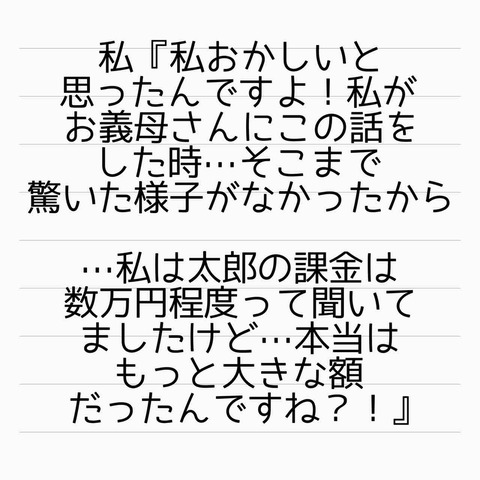 私『私おかしいと
思ったんですよ！私が
お義母さんにこの話を
した時…そこまで
驚いた様子がなかったから
…私は太郎の課金は
数万円程度って聞いて
ましたけど…本当は
もっと大きな額
だったんですね？！』